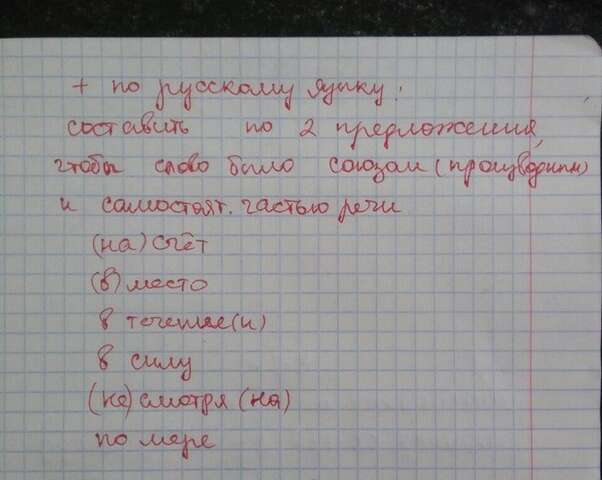 + по русскому языку:
составить по 2 предложения,
чтобы слово было союзом (производным)
и самостоят. частью речи
(на) счёт
(в) место
в течение (и)
в силу
(не) смотря (на)
по мере